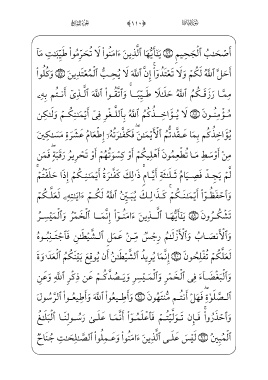 أَصْحَٰبُ ٱلْجَحِيمِ ۝ يَٰٓأَيُّهَا ٱلَّذِينَ ءَامَنُوا۟ لَا تُحَرِّمُوا۟ طَيِّبَٰتِ مَآ
أَحَلَّ ٱللَّهُ لَكُمْ وَلَا تَعْتَدُوٓا۟ إِنَّ ٱللَّهَ لَا يُحِبُّ ٱلْمُعْتَدِينَ ۝ وَكُلُوا۟
مِمَّا رَزَقَكُمُ ٱللَّهُ حَلَٰلًا طَيِّبًا وَٱتَّقُوا۟ ٱللَّهَ ٱلَّذِىٓ أَنتُم بِهِۦ
مُؤْمِنُونَ ۝ لَا يُؤَاخِذُكُمُ ٱللَّهُ بِٱللَّغْوِ فِىٓ أَيْمَٰنِكُمْ وَلَٰكِن
يُؤَاخِذُكُم بِمَا عَقَّدتُّمُ ٱلْأَيْمَٰنَ فَكَفَّٰرَتُهُۥٓ إِطْعَامُ عَشَرَةِ مَسَٰكِينَ
مِنْ أَوْسَطِ مَا تُطْعِمُونَ أَهْلِيكُمْ أَوْ كِسْوَتُهُمْ أَوْ تَحْرِيرُ رَقَبَةٍ فَمَن
لَّمْ يَجِدْ فَصِيَامُ ثَلَٰثَةِ أَيَّامٍ ذَٰلِكَ كَفَّٰرَةُ أَيْمَٰنِكُمْ إِذَا حَلَفْتُمْ
وَٱحْفَظُوٓا۟ أَيْمَٰنَكُمْ كَذَٰلِكَ يُبَيِّنُ ٱللَّهُ لَكُمْ ءَايَٰتِهِۦ لَعَلَّكُمْ
تَشْكُرُونَ ۝ يَٰٓأَيُّهَا ٱلَّذِينَ ءَامَنُوٓا۟ إِنَّمَا ٱلْخَمْرُ وَٱلْمَيْسِرُ
وَٱلْأَنصَابُ وَٱلْأَزْلَٰمُ رِجْسٌ مِّنْ عَمَلِ ٱلشَّيْطَٰنِ فَٱجْتَنِبُوهُ
لَعَلَّكُمْ تُفْلِحُونَ ۝ إِنَّمَا يُرِيدُ ٱلشَّيْطَٰنُ أَن يُوقِعَ بَيْنَكُمُ ٱلْعَدَٰوَةَ
وَٱلْبَغْضَآءَ فِى ٱلْخَمْرِ وَٱلْمَيْسِرِ وَيَصُدَّكُمْ عَن ذِكْرِ ٱللَّهِ وَعَنِ
ٱلصَّلَوٰةِ فَهَلْ أَنتُم مُّنتَهُونَ ۝ وَأَطِيعُوا۟ ٱللَّهَ وَأَطِيعُوا۟ ٱلرَّسُولَ
وَٱحْذَرُوا۟ فَإِن تَوَلَّيْتُمْ فَٱعْلَمُوٓا۟ أَنَّمَا عَلَىٰ رَسُولِنَا ٱلْبَلَٰغُ
ٱلْمُبِينُ ۝ لَيْسَ عَلَى ٱلَّذِينَ ءَامَنُوا۟ وَعَمِلُوا۟ ٱلصَّٰلِحَٰتِ جُنَاحٌ